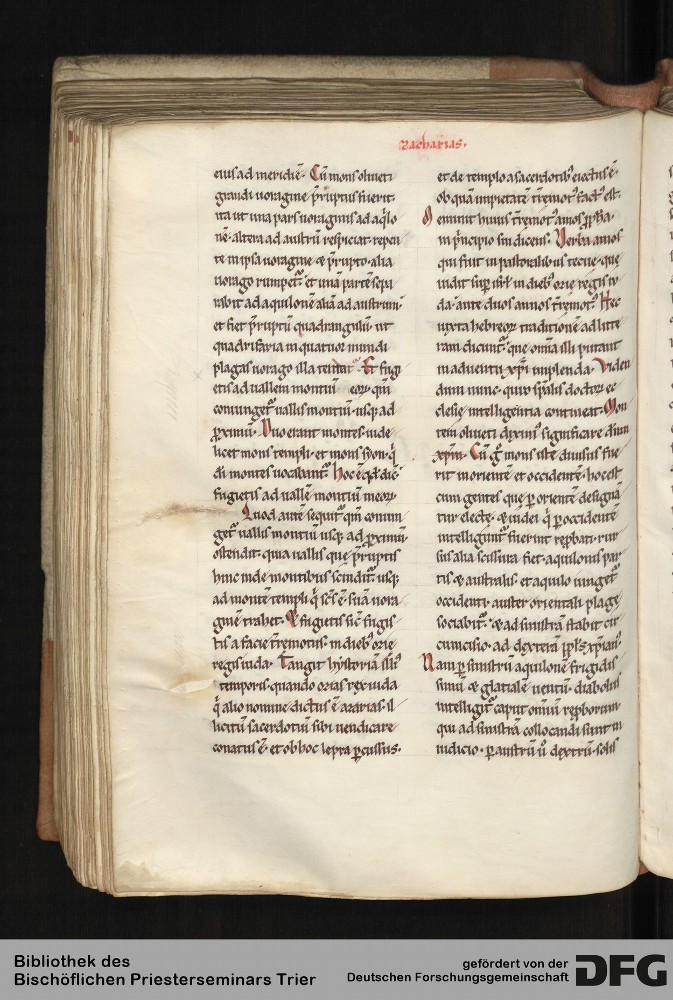 Zacharias.
eius ad meridiē. Cū mons oliueti
grandi uoragine p̄ruptus fuerit.
ita ut una pars uoraginis ad aq̇lo
nē. altera ad austrū respiciat. repen
te in ipsa uoragine & p̄rupto. alia
uorago rumpet᷑. et unā partē sepa
rabit ad aquilonē. aliā ad austrum.
et fiet p̄ruptū quadrangulū. ut
quadrifaria in quatuor mundi
plagas uorago illa tendat. Et fugi
etis ad uallem montiū eoꝝ. qm̄
coniunget᷑ uallis montiū usqꝫ ad
ꝓximū. Duo erant montes. uide
licet mons templi. et mons syon. q̇
dī montes uocabant᷑. hoc ē qd̄ dic̄.
fugietis ad uallē montiū meoꝝ.
Quod autē sequit᷑. qm̄ coniun
get᷑ uallis montiū usqꝫ ad ꝓximū.
ostendit. quia uallis que p̄ruptis
hinc inde montibus scindit᷑. usqꝫ
ad montē templi q̇ scs̄ ē. suā uora
ginē trahet. Et fugietis sic̄ fugis
tis a facie t̄remotus. in dieb᷒ ozie
regis iuda. Tangit hystoriā illi᷒
temporis. quando ozias rex iuda
q̇ alio nomine dictus ē azarias. il
licitū sacerdotiū sibi uendicare
conatus ē. et ob hoc lepra ꝑcussus.
et de templo a sacerdotib᷒ eiectus ē.
ob quā impietatē t̄remot᷒ fact᷒ est.
Meminit huius t̄remot᷒ amos ꝓph̄a.
in p̄ncipio sui dicens. Verba amos
qui fuit in pastoralibus tecue. que
uidit sup isrl̄ in dieb᷒ ozie regis iu
da. ante duos annos t̄remot᷒. Hec
iuxta hebreoꝝ traditionē ad litte
ram dicunt᷑. que om̄ia illi putant
in aduentu xp̄i implenda. Viden
dum nunc. quid sp̄alis doctoꝝ ec
clesie intelligentia contineat. Mon
tem oliueti diximus significare dn̄m
xp̄m. Cū g̊ mons iste diuisus fue
rit in orientē et occidentē. hoc est
cum gentes que ꝑ orientē designā
tur electe. & iudei q̇ ꝑ occidentē
intelligunt᷑ fuerint rep̄bati. rur
sus alia scissura fiet. aquilonis par
tis & australis. et aquilo iunget᷑
occidenti. auster orientali plage
sociabit᷑. & ad sinistrā stabit cir
cumcisio. ad dexterā ppl̄s xp̄ian᷒.
Nam ꝑ sinistrū aquilonē frigidis
simū & glacialē uentū. diabolus
intelligit᷑ caput om̄iū rep̄borum.
qui ad sinistrā collocandi sunt in
iudicio. ꝑ austrū ů dextrū. solis
Bibliothek des
Bischöflichen Priesterseminars Trier
gefördert von der
Deutschen Forschungsgemeinschaft
DFG